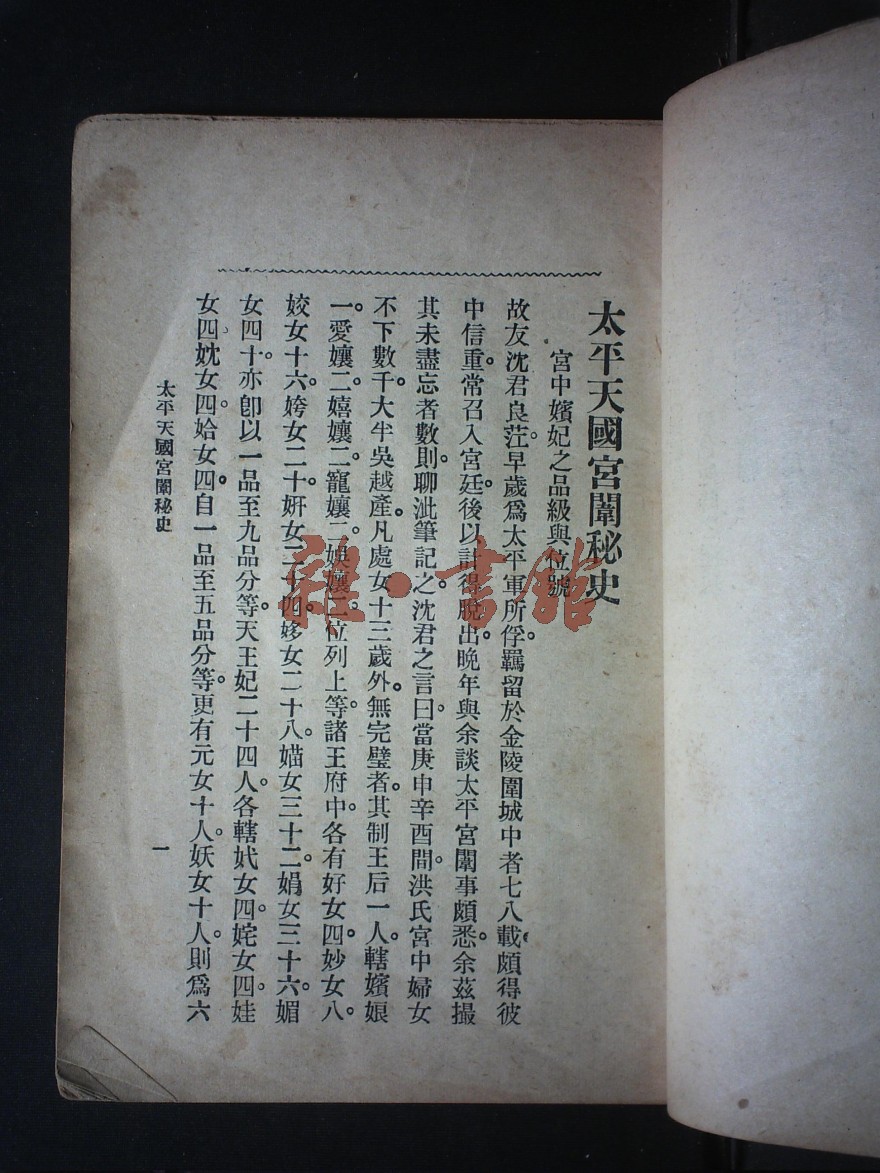 太平天國宮闈秘史
宮中嬪妃之品級與位號
故友沈君良茳。早歲爲太平軍所俘。羈留於金陵圍城中者七八載。頗得彼
中信重。常召入宮廷。後以計得脫出。晚年與余談太平宮闈事頗悉。余茲撮
其未盡忘者數則。聊泚筆記之。沈君之言曰。當庚申辛酉間。洪氏宮中婦女
不下數千。大半吳越產。凡處女十三歲外。無完璧者。其制王后一人。轄嬪娘
一。愛孃二。嬉孃二。寵孃二。娛孃二。位列上等。諸王府中。各有好女四。妙女八。
姣女十六。姱女二十。姸女二十四。姼女二十八。媌女三十二。娟女三十六。媚
女四十。亦卽以一品至九品分等。天王妃二十四人。各轄妭女四。姹女四。娃
女四。妉女四。姶女四。自一品至五品分等。更有元女十人。妖女十人。則爲六
太平天國宮闈秘史
一
雜·書館